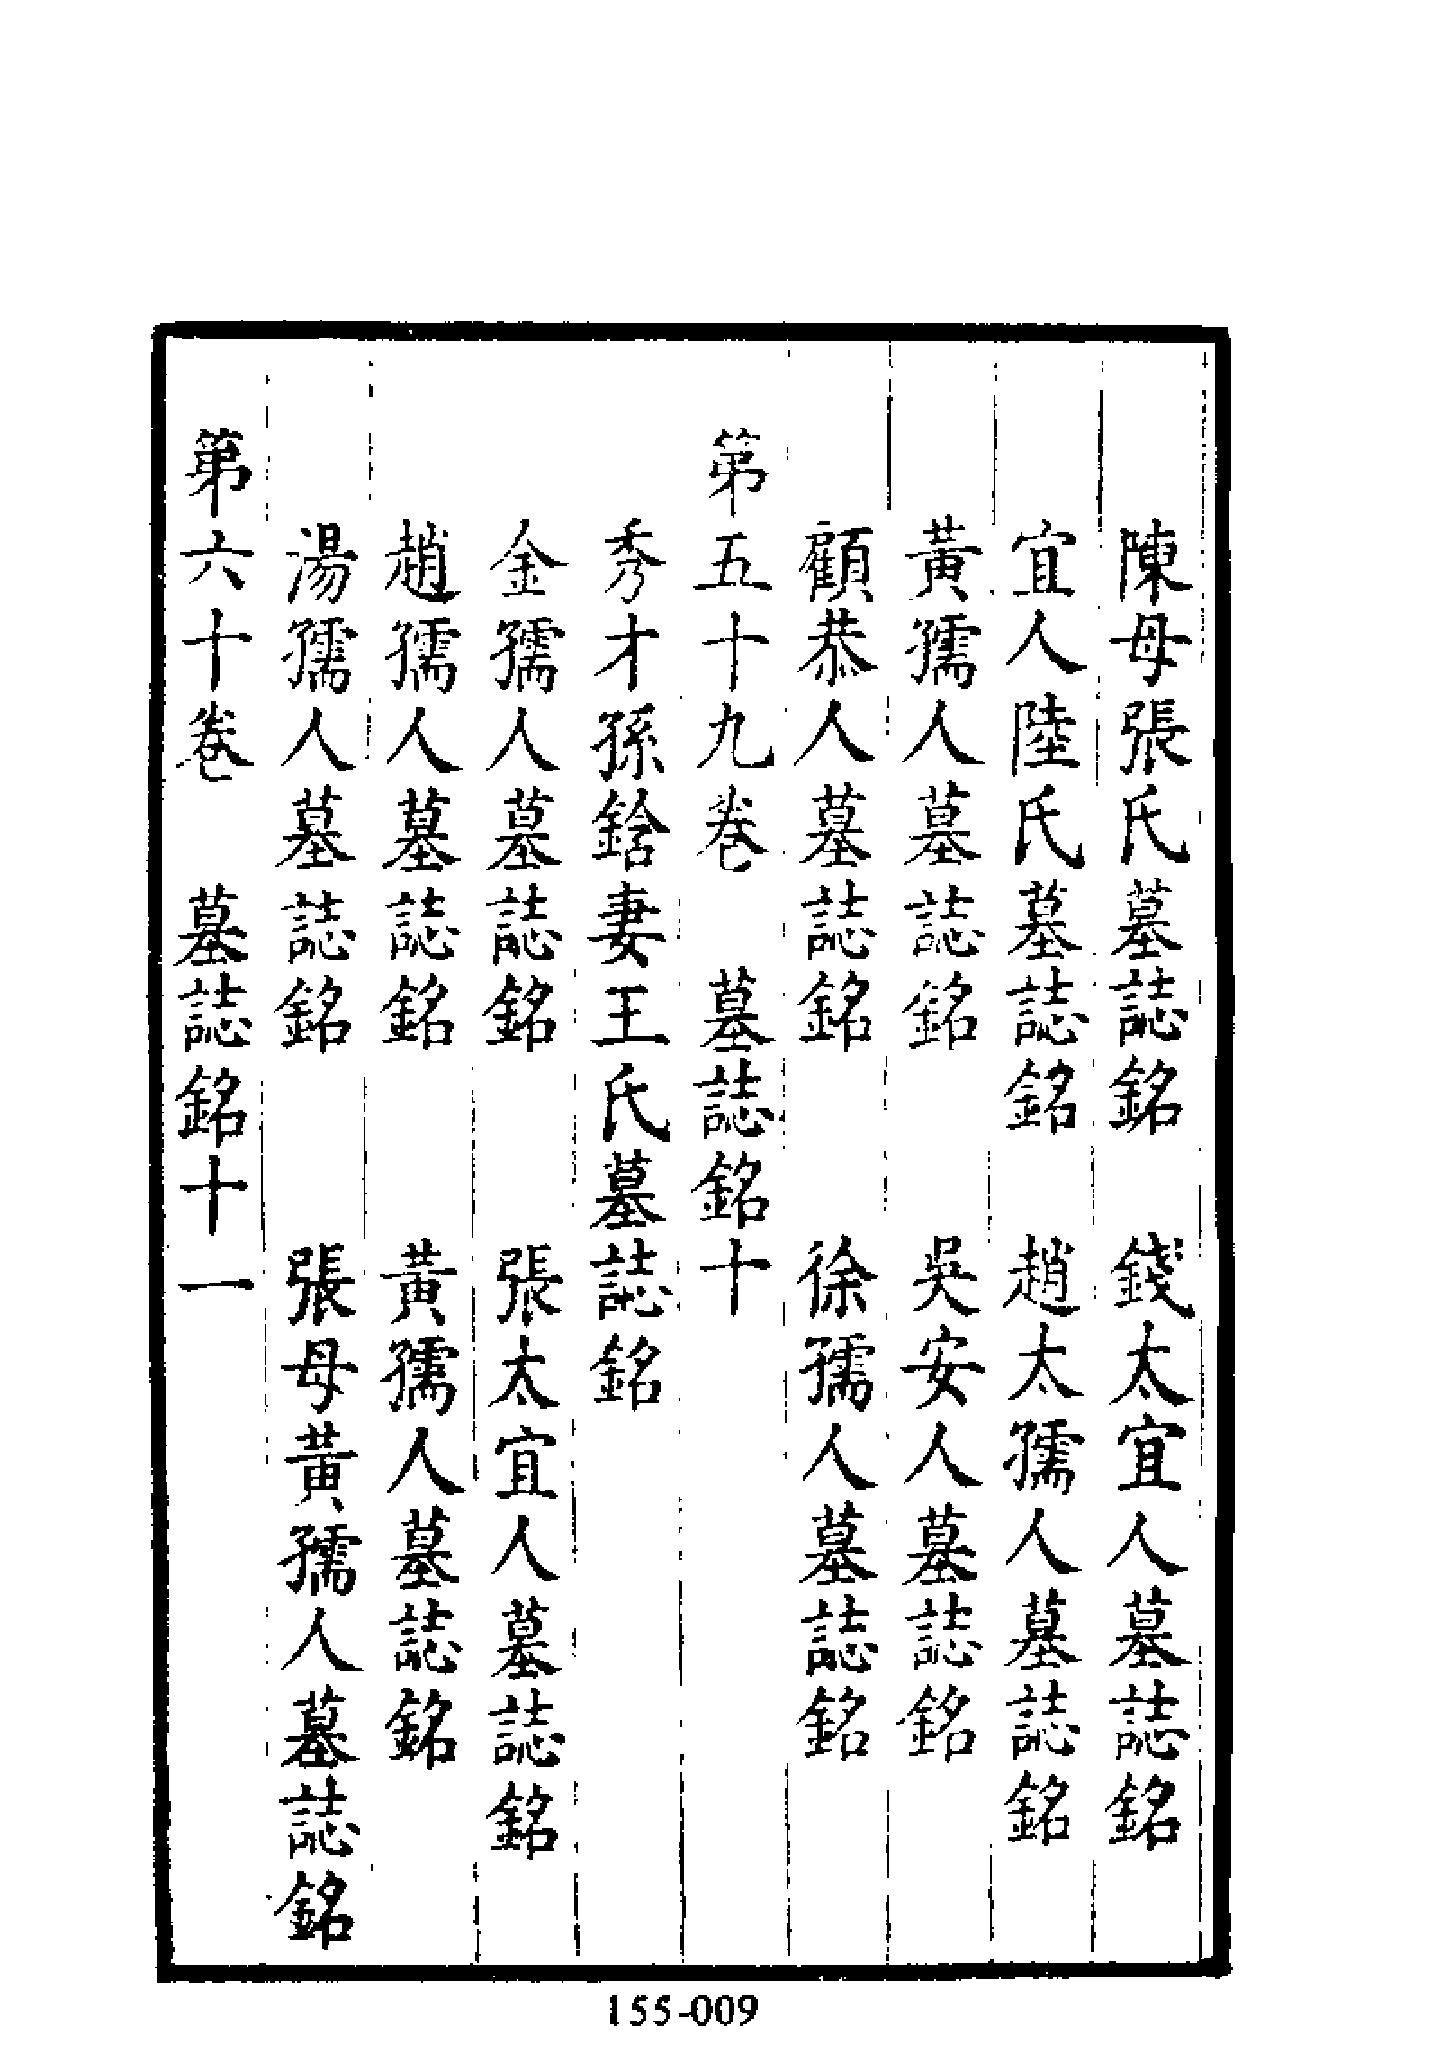 陳母張氏墓誌銘　錢太宜人墓誌銘
宜人陸氏墓誌銘　趙太孺人墓誌銘
黃孺人墓誌銘　吳安人墓誌銘
顧恭人墓誌銘　徐孺人墓誌銘
第五十九卷　墓誌銘十
秀才孫鋡妻王氏墓誌銘
金孺人墓誌銘　張太宜人墓誌銘
趙孺人墓誌銘　黃孺人墓誌銘
湯孺人墓誌銘　張母黃孺人墓誌銘
第六十卷　墓誌銘十一
155-009